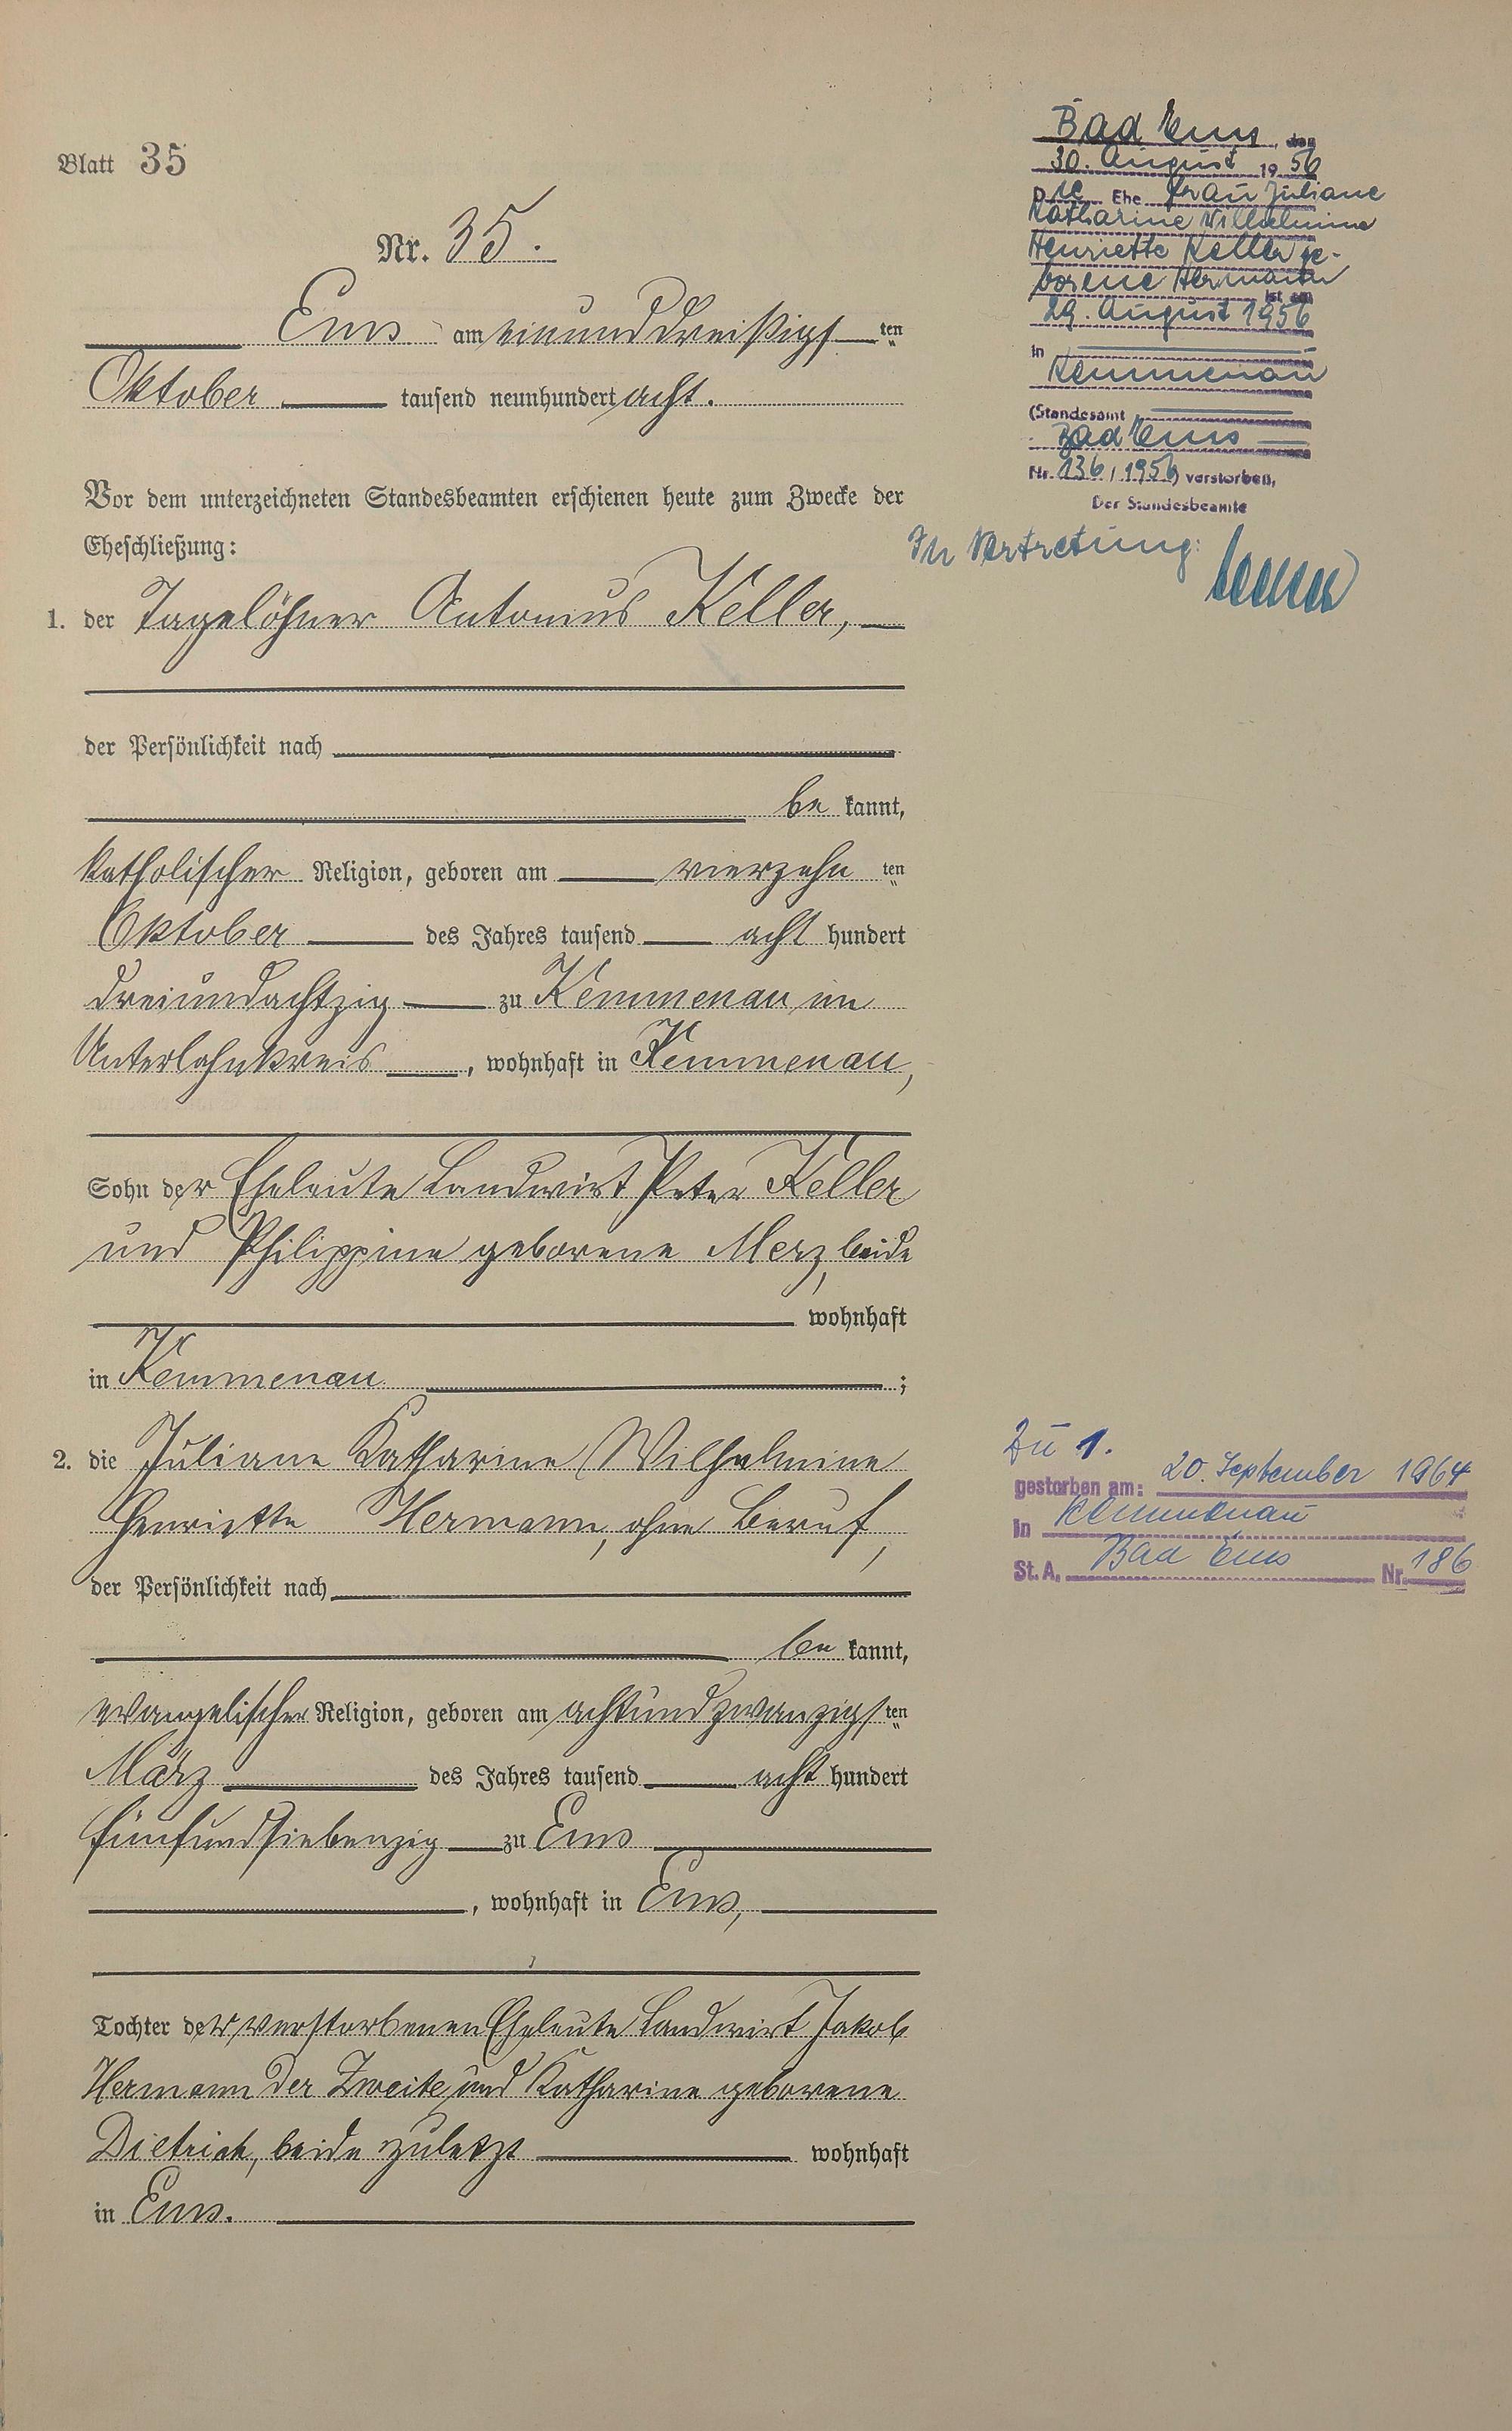 Blatt 35
Nr. 35.
Ems am einunddreißigsten
Oktober tausend neunhundert acht.
Vor dem unterzeichneten Standesbeamten erschienen heute zum Zwecke der
Eheschließung:
1. der Tagelöhner Antonius Keller,
der Persönlichkeit nach
be kannt,
katholischer Religion, geboren am vierzehn ten
Oktober des Jahres tausend acht hundert
dreiundachtzig zu Kemmenau im
Unterlahnkreis, wohnhaft in Kemmenau,
Sohn der Eheleute Landwirt Peter Keller
und Philippine geborene Merz, beide
wohnhaft
in Kemmenau ;
2. die Juliane Katharine Wilhelmine
Henriette Hermann, ohne Beruf,
der Persönlichkeit nach
be kannt,
evangelischer Religion, geboren am achtundzwanzigsten
März des Jahres tausend acht hundert
fünfundsiebenzig zu Ems
, wohnhaft in Ems,
Tochter der verstorbenen Eheleute Landwirt Jakob
Hermann der Zweite und Katharine geborene
Dietrich, beide zuletzt wohnhaft
in Ems.
Bad Ems, den
30. August 1956
Die Ehefrau Juliane
Katharine Wilhelmine
Henriette Keller ge-
borene Hermann
ist am
29. August 1956
in
Kemmenau
(Standesamt
Bad Ems
Nr. 136/1956) verstorben.
Der Standesbeamte
In Vertretung:
Zu 1.
gestorben am: 20. September 1964
in Kemmenau
St. A. Bad Ems Nr. 186